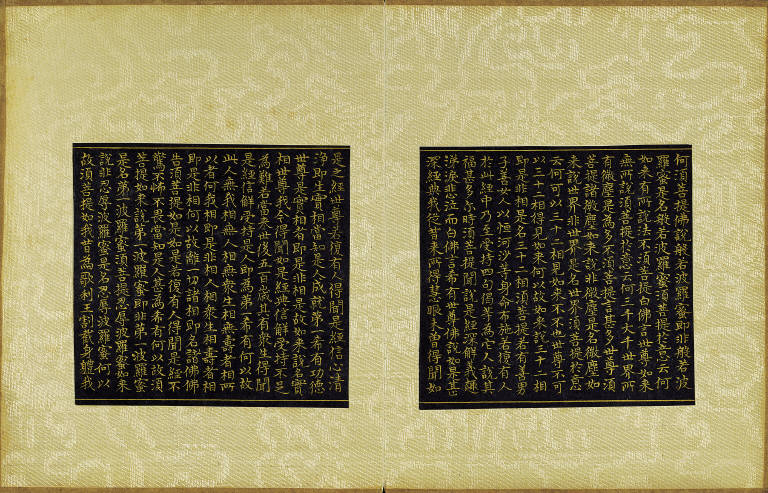 何須菩提佛說般若波羅蜜即非般若波
羅蜜是名般若波羅蜜須菩提於意云何
如來有所說法不須菩提白佛言世尊如來
無所說須菩提於意云何三千大千世界所
有微塵是為多不須菩提言甚多世尊須
菩提諸微塵如來說非微塵是名微塵如
來說世界非世界是名世界須菩提於意
云何可以三十二相見如來不不也世尊不可
以三十二相得見如來何以故如來說三十二相
即是非相是名三十二相須菩提若有善男
子善女人以恒河沙等身命布施若復有人
於此經中乃至受持四句偈等為它人說其
福甚多尒時須菩提聞說是經深解義趣
涕淚悲泣而白佛言希有世尊佛說如是甚
深經典我從昔來所得慧眼未曾得聞如
是之經世尊若復有人得聞是經信心清
淨即生實相當知是人成就第一希有功德
世尊是實相者即是非相是故如來說名實
相世尊我今得聞如是經典信解受持不足
為難若當來世後五百歲其有眾生得聞
是經信解受持是人即為第一希有何以故
此人無我相無人相無眾生相無壽者相所
以者何我相即是非相人相眾生相壽者相
即是非相何以故離一切諸相即名諸佛佛
告須菩提如是如是若復有人得聞是經不
驚不怖不畏當知是人甚為希有何以故須
菩提如來說第一波羅蜜即非第一波羅蜜
是名第一波羅蜜須菩提忍辱波羅蜜如來
說非忍辱波羅蜜是名忍辱波羅蜜何以
故須菩提如我昔為歌利王割截身體我